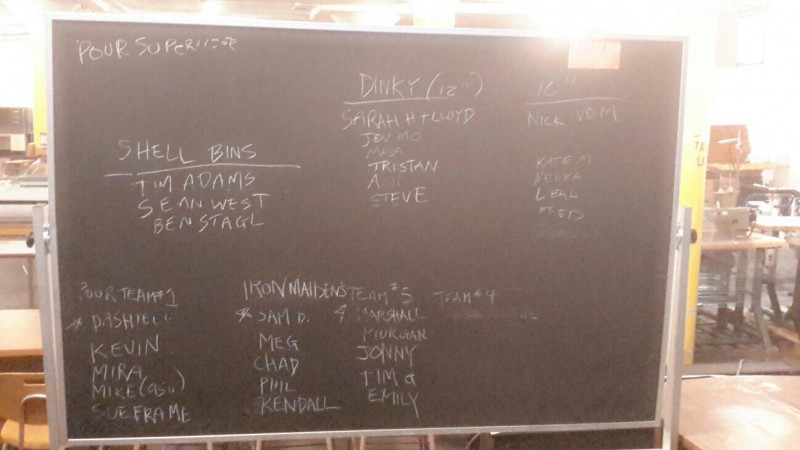 POUR SUPERVISE
DINKY (12")
SARAH H + LLOYD
JEN MO
MAYA
TRISTAN
STEVE
NICK VD M
KATE M
LEAL
FRED
SHELL BINS
TIM ADAMS
SEAN WEST
BEN STAGL
POUR TEAM #1
* DASHIELL
KEVIN
MIRA
MIKE (ASU)
SUE FRAME
IRON MAIDENS
* SAM D.
MEG
CHAD
PHIL
KENDALL
TEAM #3
MARSHALL
MORGAN
JONNY
TIM G
EMILY
TEAM #4